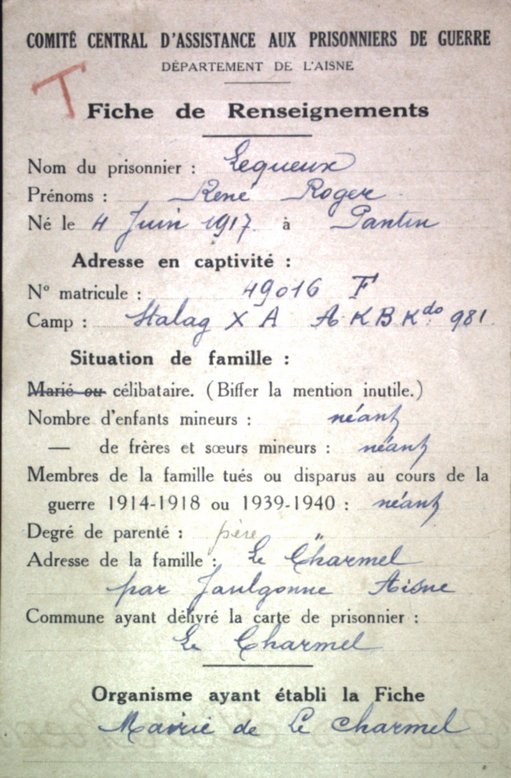 COMITÉ CENTRAL D'ASSISTANCE AUX PRISONNIERS DE GUERRE
DÉPARTEMENT DE L'AISNE
T
Fiche de Renseignements
Nom du prisonnier : Lequeux
Prénoms : René Roger
Né le 4 Juin 1917 à Pantin
Adresse en captivité :
N° matricule : 49016 F
Camp : Stalag X A A K B Kdo 981
Situation de famille :
Marié ou célibataire. (Biffer la mention inutile.)
Nombre d'enfants mineurs : néant
— de frères et sœurs mineurs : néant
Membres de la famille tués ou disparus au cours de la
guerre 1914-1918 ou 1939-1940 : néant
Degré de parenté : père
Adresse de la famille : Le Charmel
par Jaulgonne Aisne
Commune ayant délivré la carte de prisonnier :
Le Charmel
Organisme ayant établi la Fiche
Mairie de Le Charmel